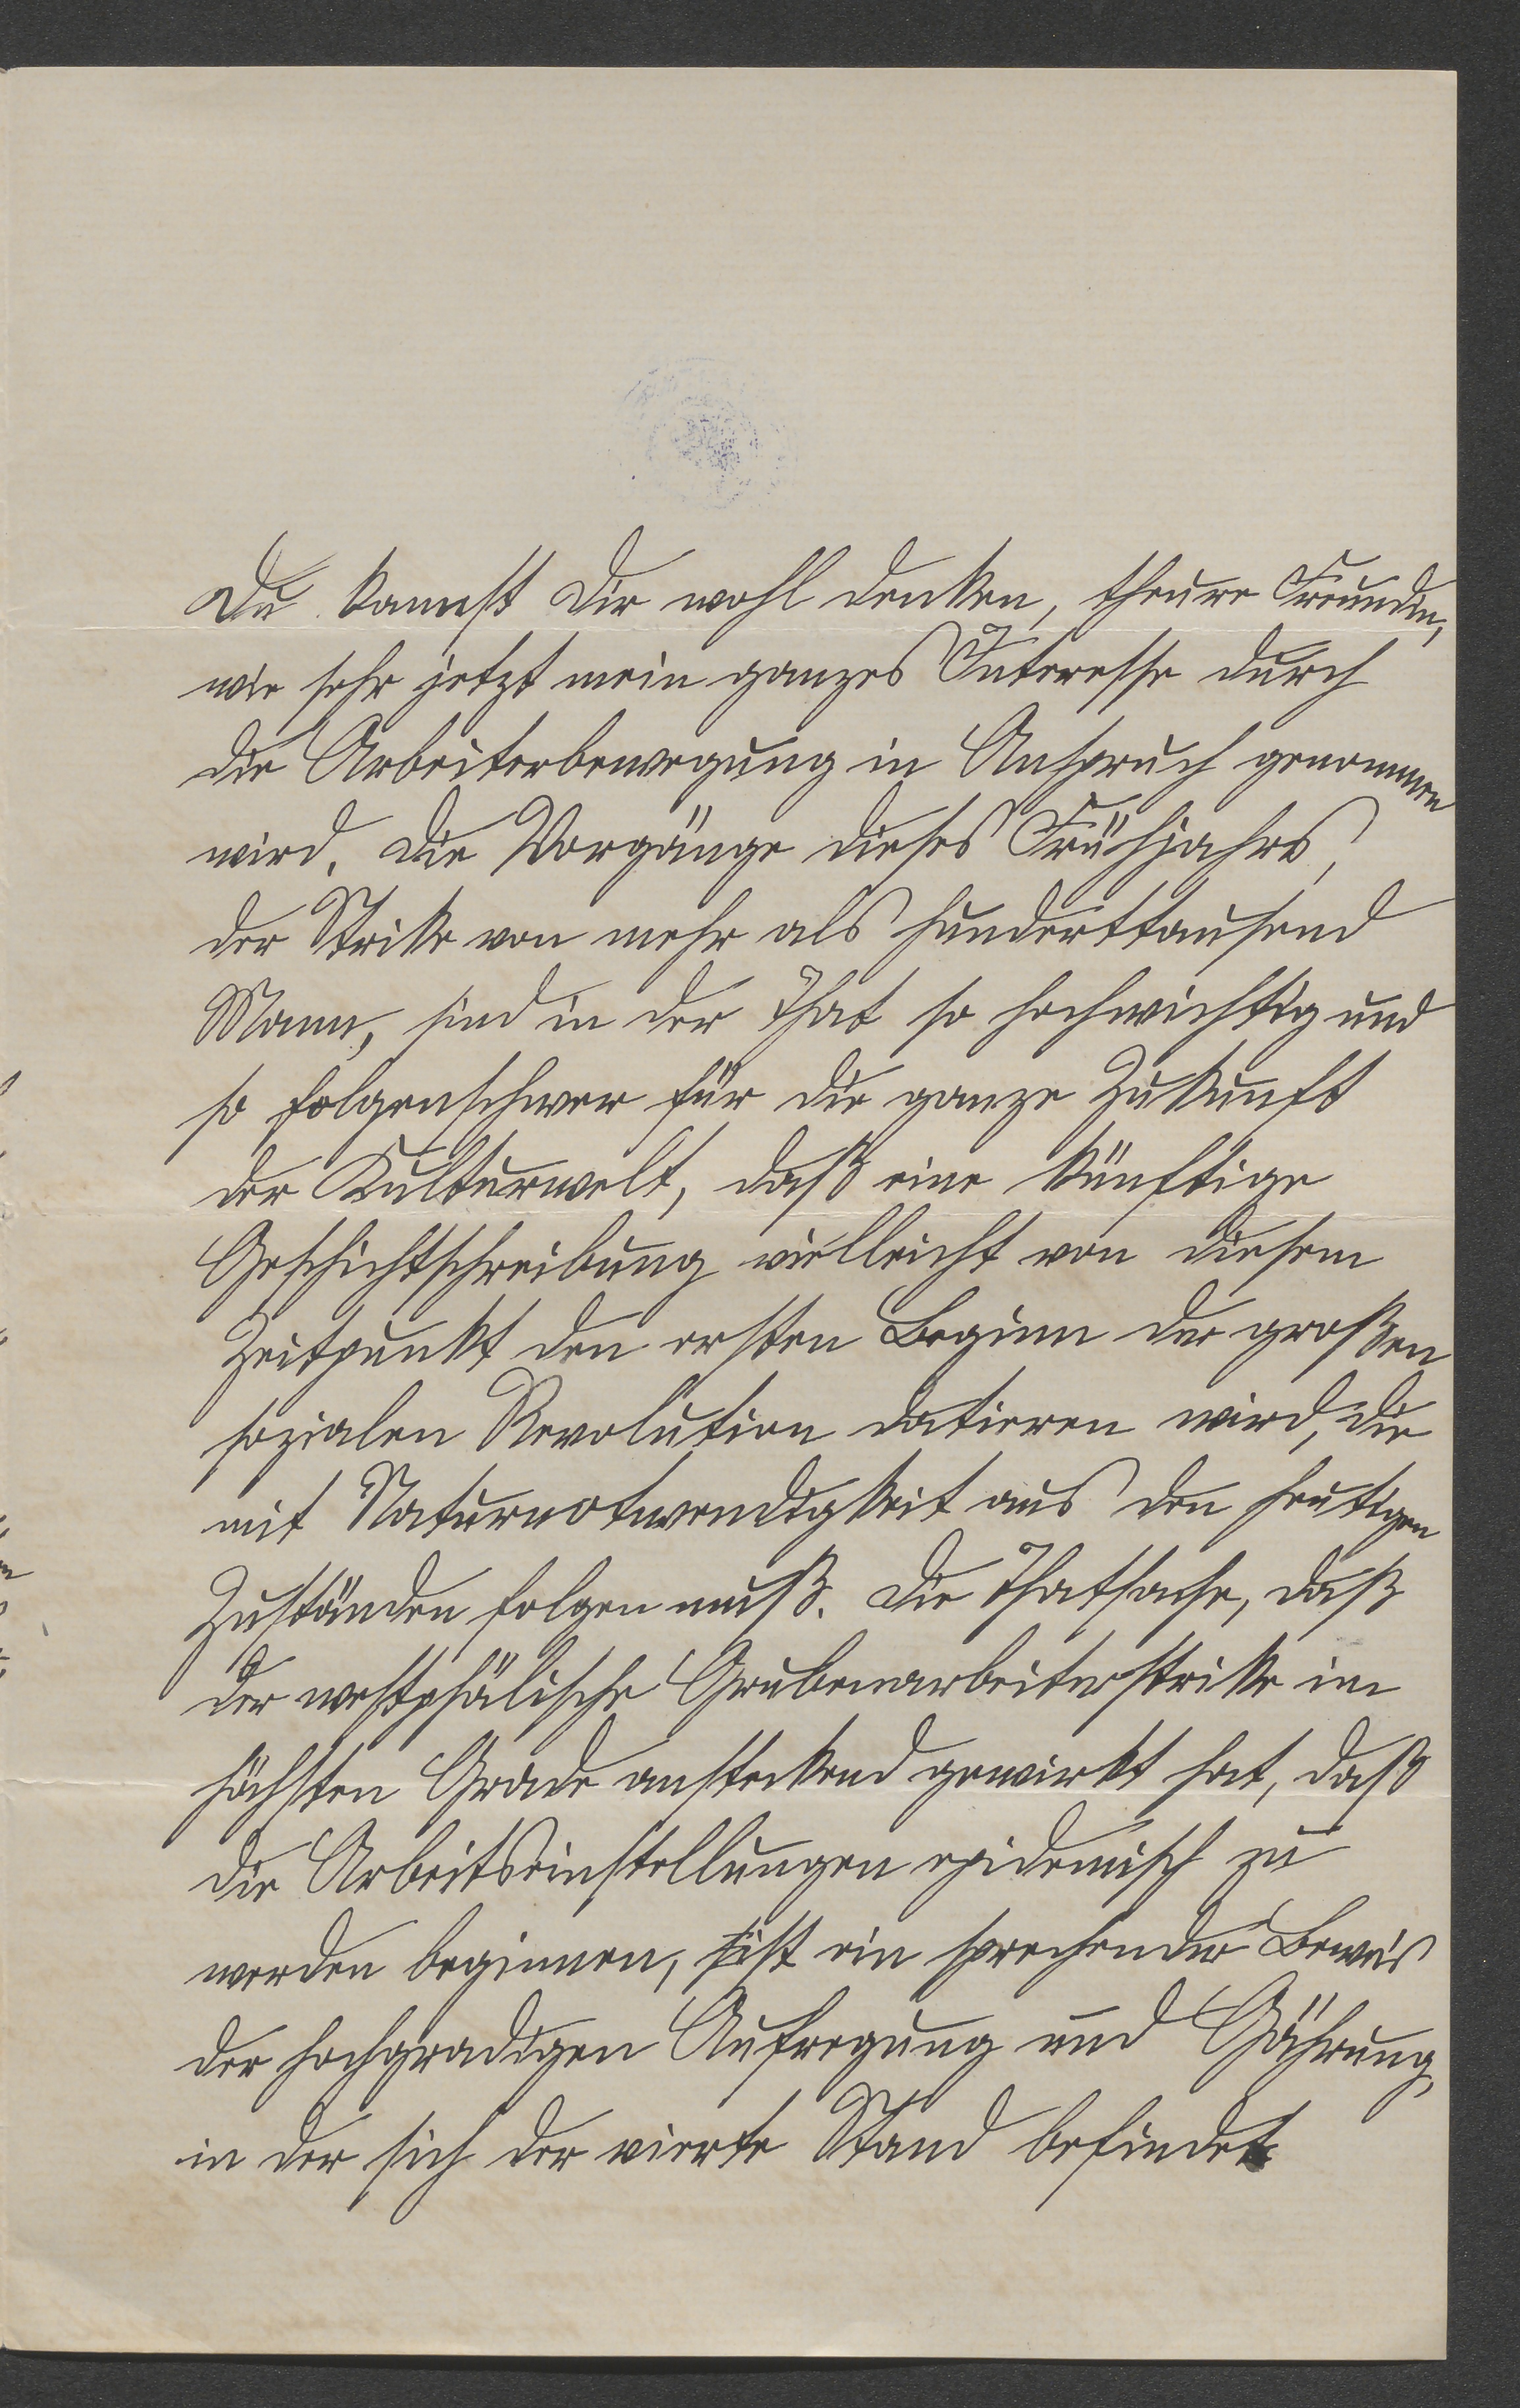 Du kannst Dir wohl denken, theure Freundin,
wie sehr jetzt mein ganzes Interesse durch
die Arbeiterbewegung in Anspruch genommen
wird. Die Vorgänge dieses Frühjahrs,
der Strike von mehr als hunderttausend
Mann, sind in der That so hochwichtig und
so folgenschwer für die ganze Zukunft
der Kulturwelt, daß eine künftige
Geschichtschreibung vielleicht von diesem
Zeitpunkt den ersten Beginn der großen
sozialen Revolution datieren wird, die
mit Naturnotwendigkeit aus den heutigen
Zuständen folgen muß. Die Thatsache, daß
der westphälische Grubenarbeiterstrike im
höchsten Grade ansteckend gewirkt hat, daß
die Arbeitseinstellungen epidemisch zu
werden beginnen, ist ein sprechender Beweis
der hochgradigen Aufregung und Gährung,
in der sich der vierte Stand befindet.